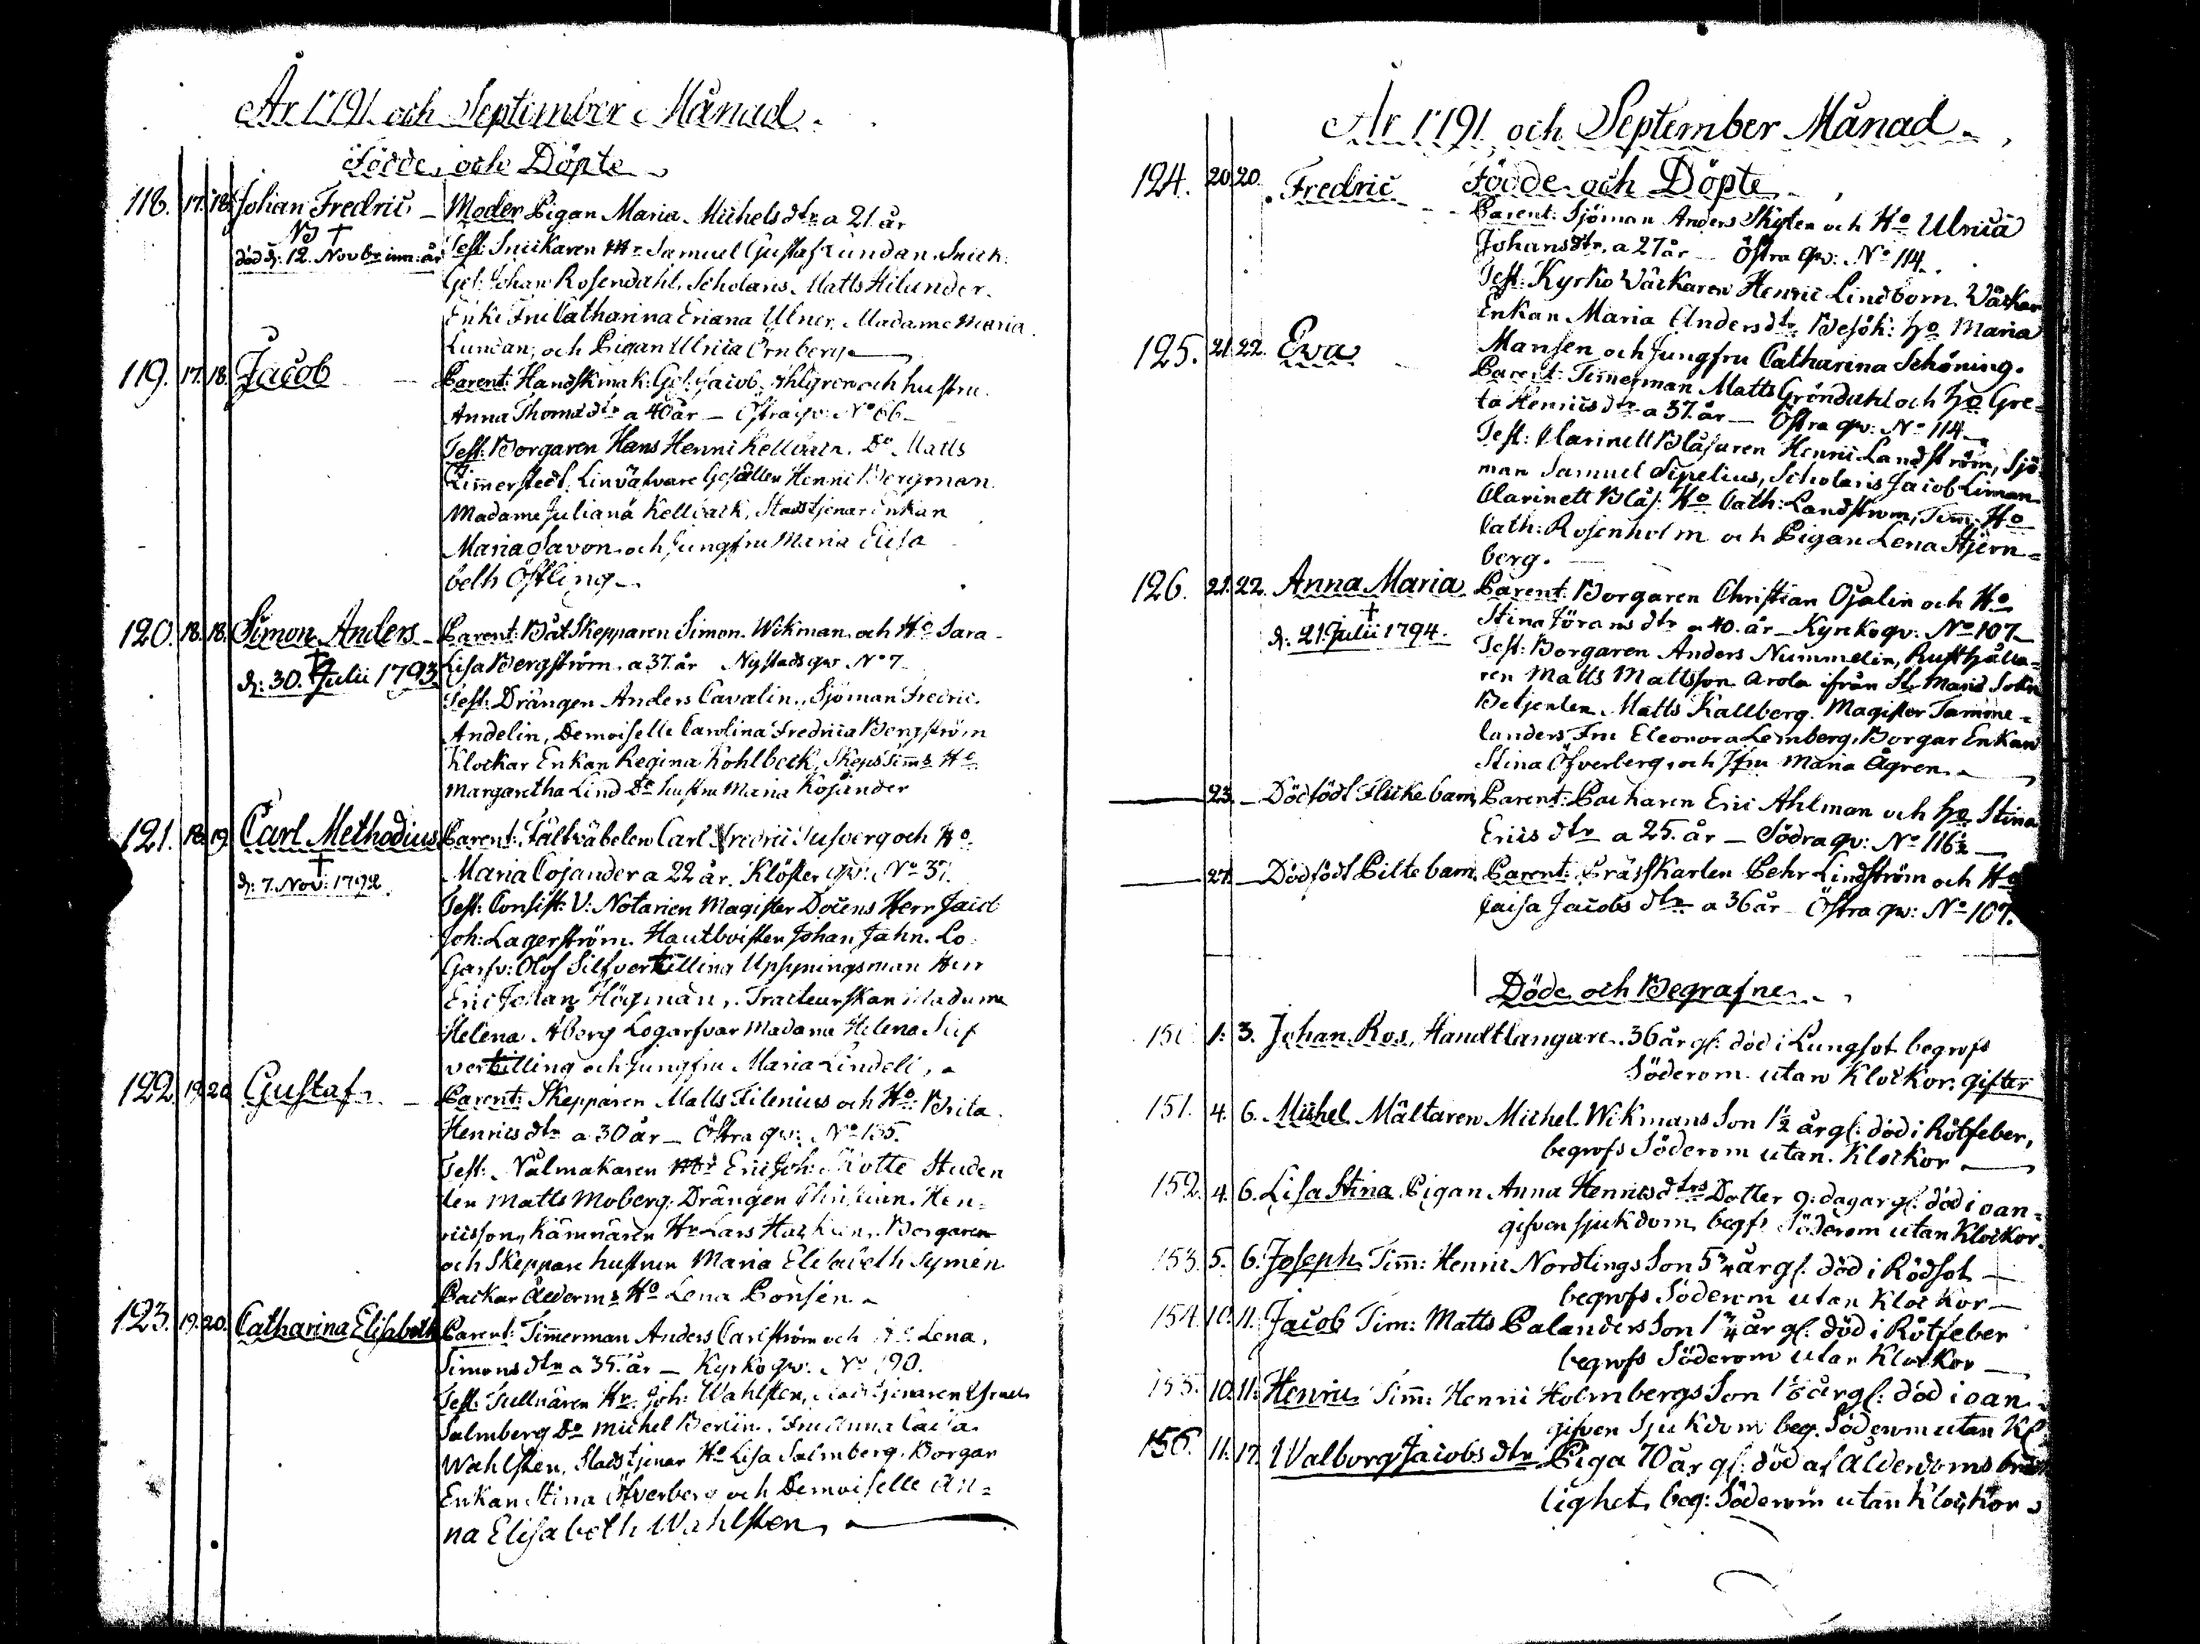 År 1791 och September Månad.
Födde och Döpte
118. 17. 18. Johan Fredric – Moder Pigan Maria Michels dtr a 21. år
död d: 12. Novbr inn: år Test: Snickaren Mr Samuel Gustaf Lundan Snick:
Ges: Johan Rosendahl, Scholaris Matts Hilander.
Enke Fru Catharina Ulner, Madame Maria
Lundan, och Pigan Ulrica Örnberg
119. 17. 18. Jacob – Parent: Handskmak: Ges: Jacob Ahlgren och hustru
Anna Thomædtr a 40 år – Östra qv: No 66
Test: Borgaren Hans Henric Kellback. Do Matts
Limmerstedt. Linväfvare Gesällen Henric Bergman.
Madame Juliana Kellback, Stadstjenar Enkan
Maria Savon och Jungfru Maria Elisa
beth Östling
120. 18. 18. Simon Anders – Parent: Båt Skepparen Simon Wikman och Ho Sara
d: 30. Julii 1793. Lisa Bergström a 37. år Nystads qv No 7
Test: Drängen Anders Cavalin, Sjöman Fredric
Andelin, Demoiselle Carolina Fredrica Bergström
Klockar Enkan Regina Kohlbeck, Skeps Timms Ho
Margaretha Lind Do hustru Maria Kosander
121. 18. 19. Carl Methodius Parent: Fältväbelen Carl Fredric Tusberg och Ho
d: 7. Nov: 1792. Maria Cojander a 22 år. Klöster qv: No 37.
Test: Consist: V: Notarien Magister Docens Herr Jacob
Joh: Lagerström. Hautboisten Johan Jahn. Lo
Garfv: Olof Silfverkilling Upsyningsman Herr
Eric Johan Högman, Tracteurskan Madame
Helena Åberg Logarfvar Madame Helena Silf
verkilling och Jungfru Maria Lindell,
122. 19. 20. Gustaf – Parent: Skepparen Matts Filenius och Ho Brita
Henrics dtr a 30 år – Östra qv: No 135.
Test: Nålmakaren Mr Eric Joh: Kotte Studen
ten Matts Moberg, Drängen Christian Hen=
ricsson, Kämnären Hr Lars Borgaren
och Skeppare hustrun Maria Elisabeth Symén
Packar Ålderms Ho Lena Ponsén
123. 19. 20. Catharina Elisabeth Parent: Timmerman Anders Carlström och Ho Lena
Simons dtr a 35. år – Kyrko qv: No 190.
Test: Tullnären Hr Joh: Wahlsten, Stadstjenaren Israel
Salmberg Do Michel Berlin. Fru Anna Caisa
Wahlsten, Stadstjenar Ho Lisa Salmberg. Borgar
Enkan Stina Öfverberg och Demoiselle An=
na Elisabeth Wahlsten,
År 1791 och September Månad
Födde och Döpte
124. 20. 20. Fredric Parent: Sjöman Anders Skyten och Ho Ulrica
Johansdtr. a 27 år – Östra qv: No 114.
Test: Kyrko Wäckaren Henric Lindborn. Wäckar
Enkan Maria Anders dtr Besök: Ho Maria
Mansen och Jungfru Catharina Schöning.
125. 21. 22. Eva Parent: Timmerman Matts Gröndahl och Ho Gre=
ta Henrics dtr a 37. år – Östra qv: No 114
Test: Clarinett Blåsaren Henric Landström, Sjö
man Samuel Sipelius, Scholaris Jacob Liman
Clarinett Blås: Ho Cath: Landstrom, Timm: Ho
Cath: Rosenholm och Pigan Lena Stjern=
berg.
126. 21. 22. Anna Maria Parent: Borgaren Christian Osalin och Ho
d: 21 Julii 1794. Stina Jörans dtr a 40. år – Kyrko qv: No 107
Test: Borgaren Anders Nummelin, Rusthålla=
ren Matts Mattsson Arola ifrån Ste Mariæ Sokn
Betjenten Matts Kallberg. Magister Tamme=
landers Fru Eleonora Lemberg, Borgar Enkan
Stina Öfverberg, och Jfru Maria Ågren
23. – Dödfödt Flicke barn, Parent: Packaren Eric Ahlman och Ho Stina
Erics dtr a 25. år – Södra qv: No 116½
27. – Dödfödt Pilte barn. Parent: Fräss Karlen Pehr Lindström och Ho
Caisa Jacobs dtr a 36 år – Östra qv: No 107.
Döde och Begrafne
150 1. 3. Johan Ros, Handtlangare. 36 år gl: död i Lungsot begrofs
Söderom utan Klockor. gifter
151. 4. 6. Michel Mältaren Michel Wikmans Son 1½ år gl: död i Rötfeber,
begrofs Söderom utan Klockor
152. 4. 6. Lisa Stina Pigan Anna Henricsdtrs Dotter 9. dagar gl: död i oan=
gifven sjukdom begfs Söderom utan Klockor.
153. 5. 6. Joseph Timm: Henric Nordlings Son 5¾ år gl: död i Rödsot
begrofs Söderom utan Klockor
154. 10. 11. Jacob Tim: Matts Palanders Son 1¾ år gl: död i Rötfeber
begrofs Söderom utan Klockor
155. 10. 11. Henric Timm: Henric Holmbergs Son år gl: död i oan=
gifven Sjukdom beg. Söderom utan Kl
156. 11. 17. Walborg Jacobs dtr Piga 70 år gl: död af Ålderdoms bräck
lighet, beg: Söderom utan Klockor